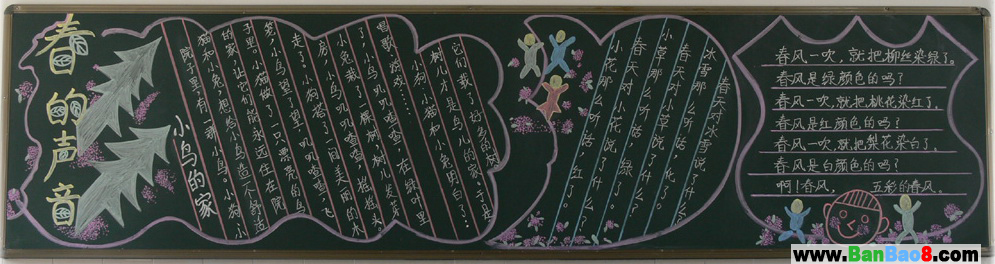 春的声音
小鸟的家
院子里,有一群小鸟。小狗、小
猫和小兔子想给小鸟造个舒适
的家,让它们能永远住在院
子里。小猫做了一只漂亮的鸟
笼,小鸟望了望,叽叽喳喳,飞
走了。小狗搭了一间美丽的木
房,小鸟叽叽喳喳,摇摇头。
小兔栽了一棵树,树儿发芽
了,小鸟叽叽喳喳,在绿叶里
唱歌游戏……
小狗、小猫和小兔明白了:
树儿才是鸟儿的家,于是
它们栽了好多的树。
春天对冰雪说了什么?
冰雪那么听话,化了。
春天对小草说了什么?
小草那么听话,绿了。
春天对小花说了什么?
小花那么听话,红了。
春风一吹,就把柳丝染绿了。
春风是绿颜色的吗?
春风一吹,就把桃花染红了,
春风是红颜色的吗?
春风一吹,就把梨花染白了,
春风是白颜色的吗?
啊!春风,五彩的春风。
www.BanBao8.com